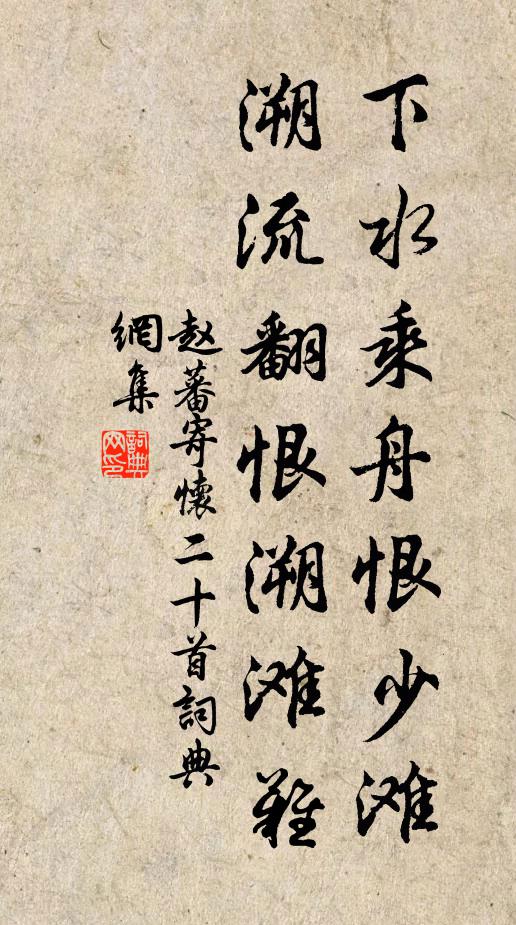 下水乘舟恨少滩
溯流翻恨溯滩難
赵蕃寄懷二十首詞典
網集
詞典网印